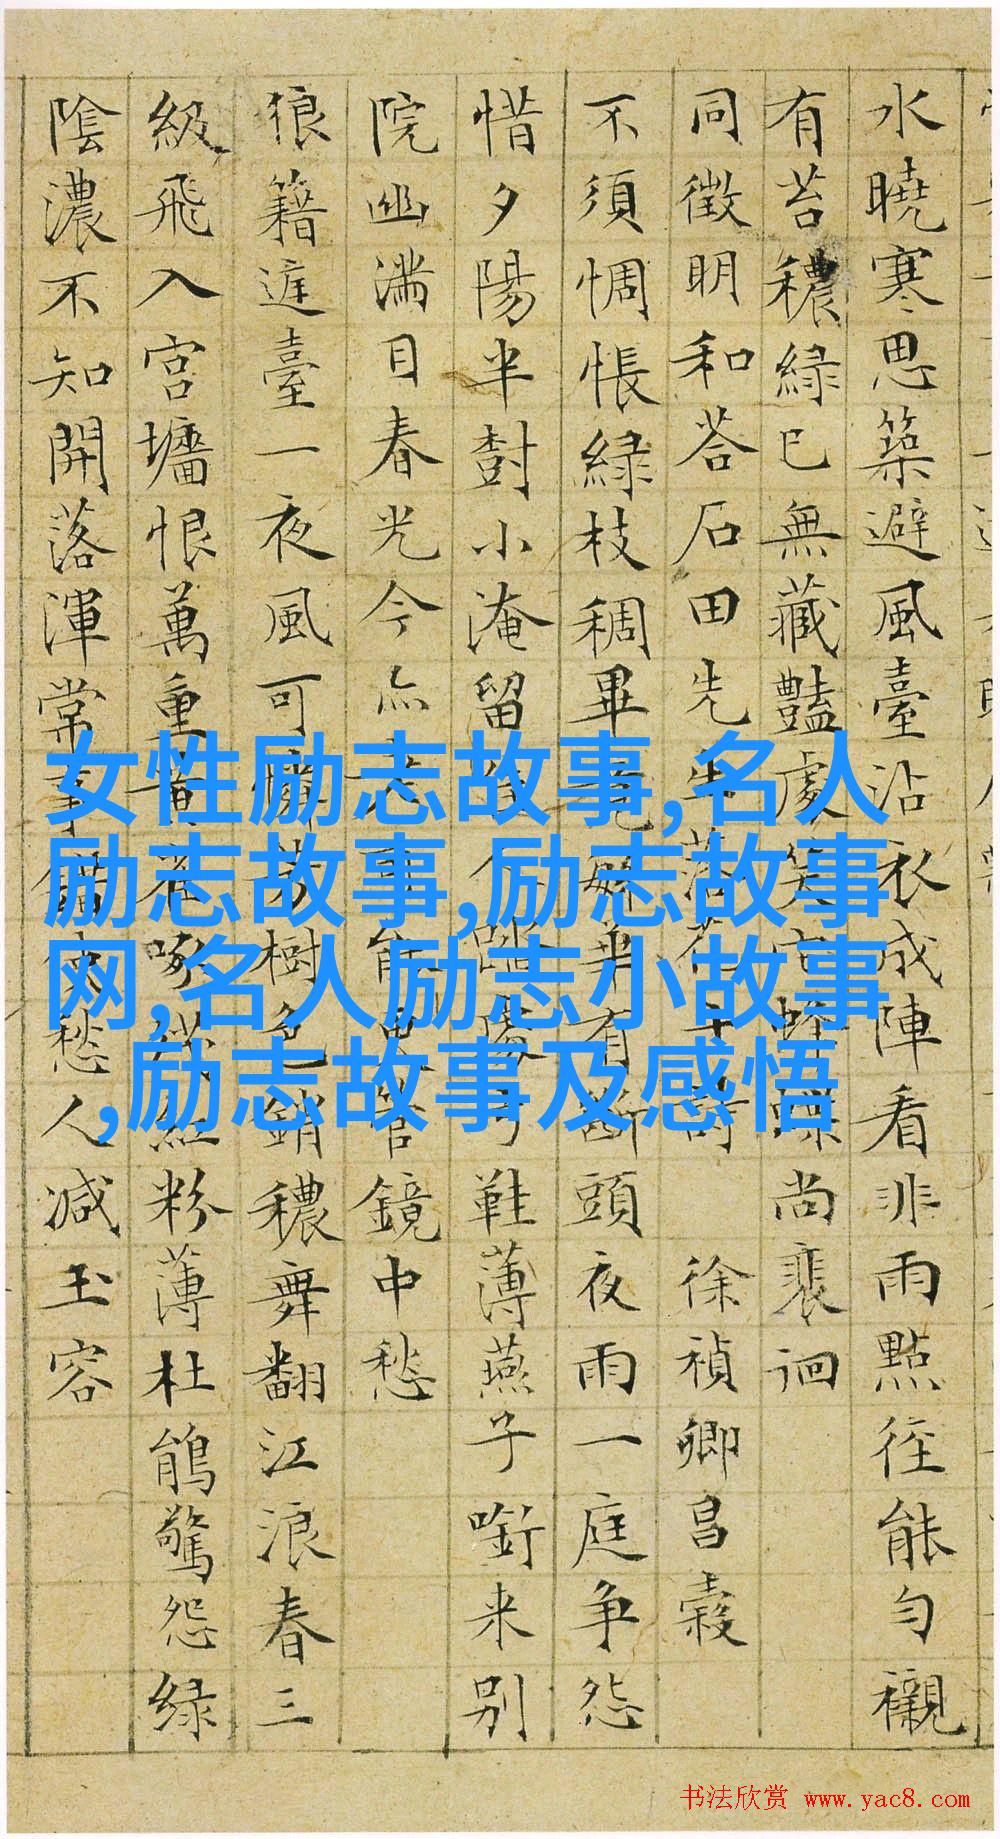 水曉寒思築避風臺沾衣成陣看非雨點徑能勻襯
有苔穠綠已無藏豔處笑蜂蝶尚裴徊
同徵明和荅石田先生落花十詩 徐禎卿昌穀
不須惆悵綠枝稠畢竟繁華有斷頭夜雨一庭争怨
惜夕陽半樹小淹留佳人踏處弓鞋薄燕子啣来別
院幽滿目春光今亦老鏡中愁
狼籍庭臺一夜風可憐芳樹色銷穠舞翻江浪春三
級飛入宮墻恨萬重紅粉薄杜鵑驚怨綠
陰濃不知開落渾常事愁人减玉容
女性励志故事,名人
励志故事,励志故事
网,名人励志小故事
,励志故事及感悟
书法欣赏 www.yac8.com